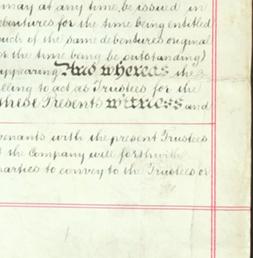 may at any time be issued in
debentures for the time being entitled
such of the same debentures original
for the time being be outstanding)
appearing And whereas the
willing to act as Trustees for the
these Presents witness and
covenants with the present Trustees
the Company will forthwith
parties to convey to the Trustees or